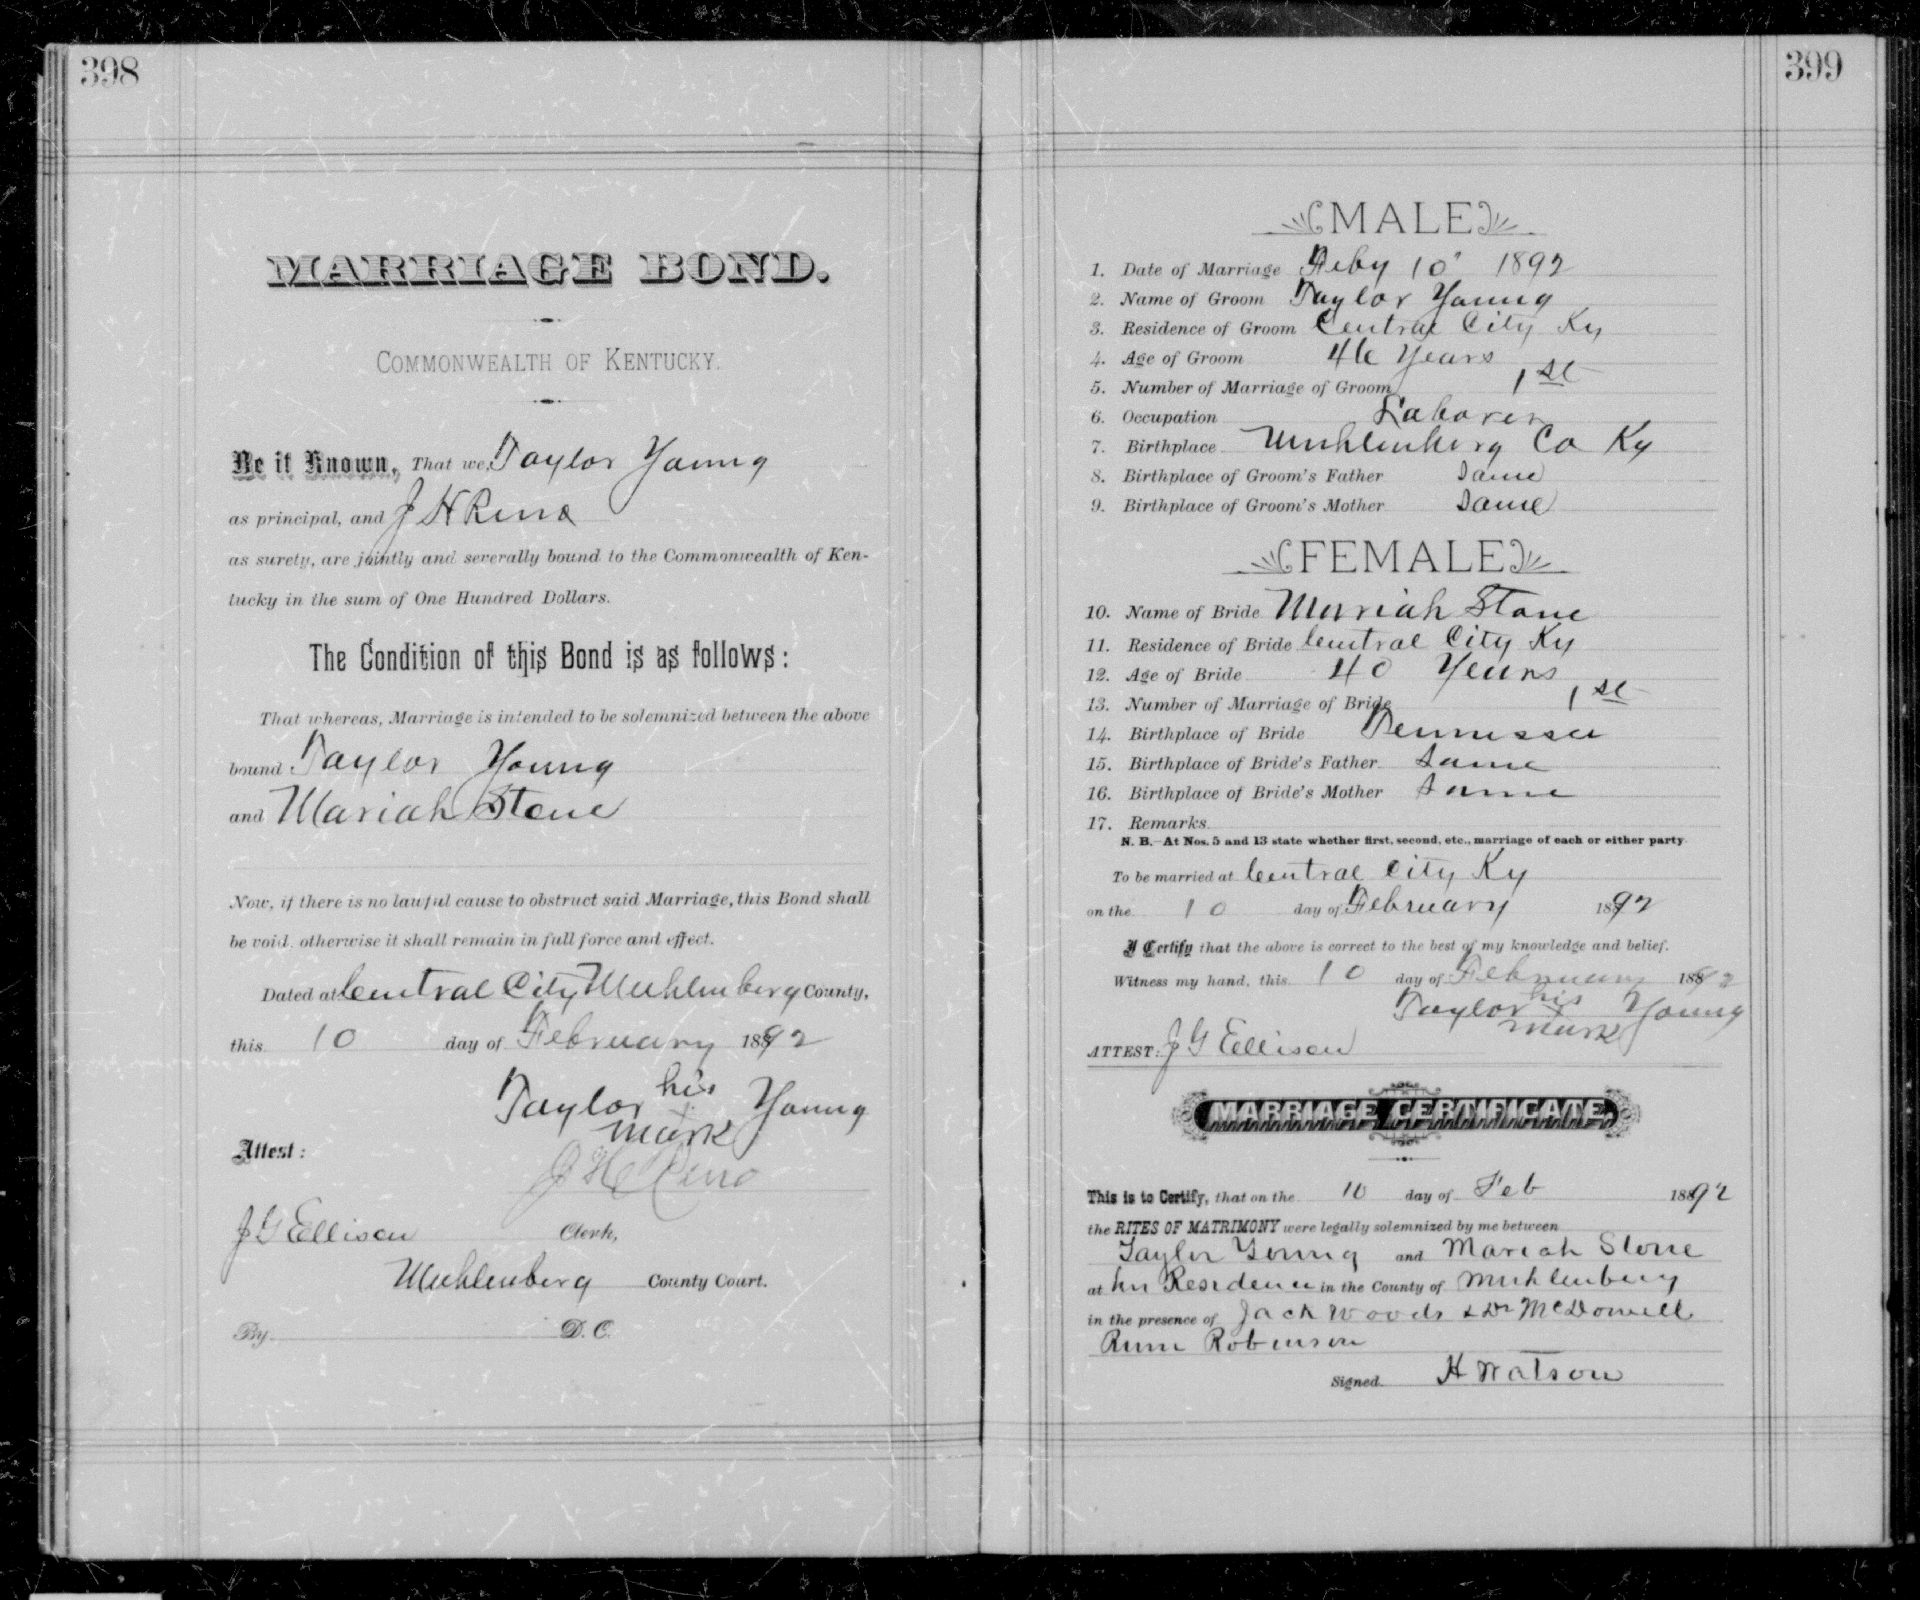 398
MARRIAGE BOND.
COMMONWEALTH OF KENTUCKY.
Be it Known, That we, Taylor Young
as principal, and J H Reno
as surety, are jointly and severally bound to the Commonwealth of Ken-
tucky in the sum of One Hundred Dollars.
The Condition of this Bond is as follows:
That whereas, Marriage is intended to be solemnized between the above
bound Taylor Young
and Mariah Stone
Now, if there is no lawful cause to obstruct said Marriage, this Bond shall
be void, otherwise it shall remain in full force and effect.
Dated at Central City Muhlenberg County,
this 10 day of February 1892
Taylor his Young
mark
Attest:
J H Reno
J G Ellison Clerk,
Muhlenberg County Court.
By D. C.
399
MALE
1. Date of Marriage Feby 10" 1892
2. Name of Groom Taylor Young
3. Residence of Groom Central City Ky
4. Age of Groom 46 Years
5. Number of Marriage of Groom 1st
6. Occupation Laborer
7. Birthplace Muhlenberg Co Ky
8. Birthplace of Groom's Father Same
9. Birthplace of Groom's Mother Same
FEMALE
10. Name of Bride Mariah Stone
11. Residence of Bride Central City Ky
12. Age of Bride 40 Years
13. Number of Marriage of Bride 1st
14. Birthplace of Bride Tennessee
15. Birthplace of Bride's Father Same
16. Birthplace of Bride's Mother Same
17. Remarks
N. B.—At Nos. 5 and 13 state whether first, second, etc., marriage of each or either party.
To be married at Central City Ky
on the 10 day of February 1892
I Certify that the above is correct to the best of my knowledge and belief.
Witness my hand, this 10 day of February 1892
Taylor his Young
mark
ATTEST: J G Ellison
MARRIAGE CERTIFICATE.
This is to Certify, that on the 10 day of Feb 1892
the RITES OF MATRIMONY were legally solemnized by me between
Taylor Young and Mariah Stone
at Residence in the County of Muhlenberg
in the presence of Jack Woods & Dr McDowell
Robinson
Signed H Watson